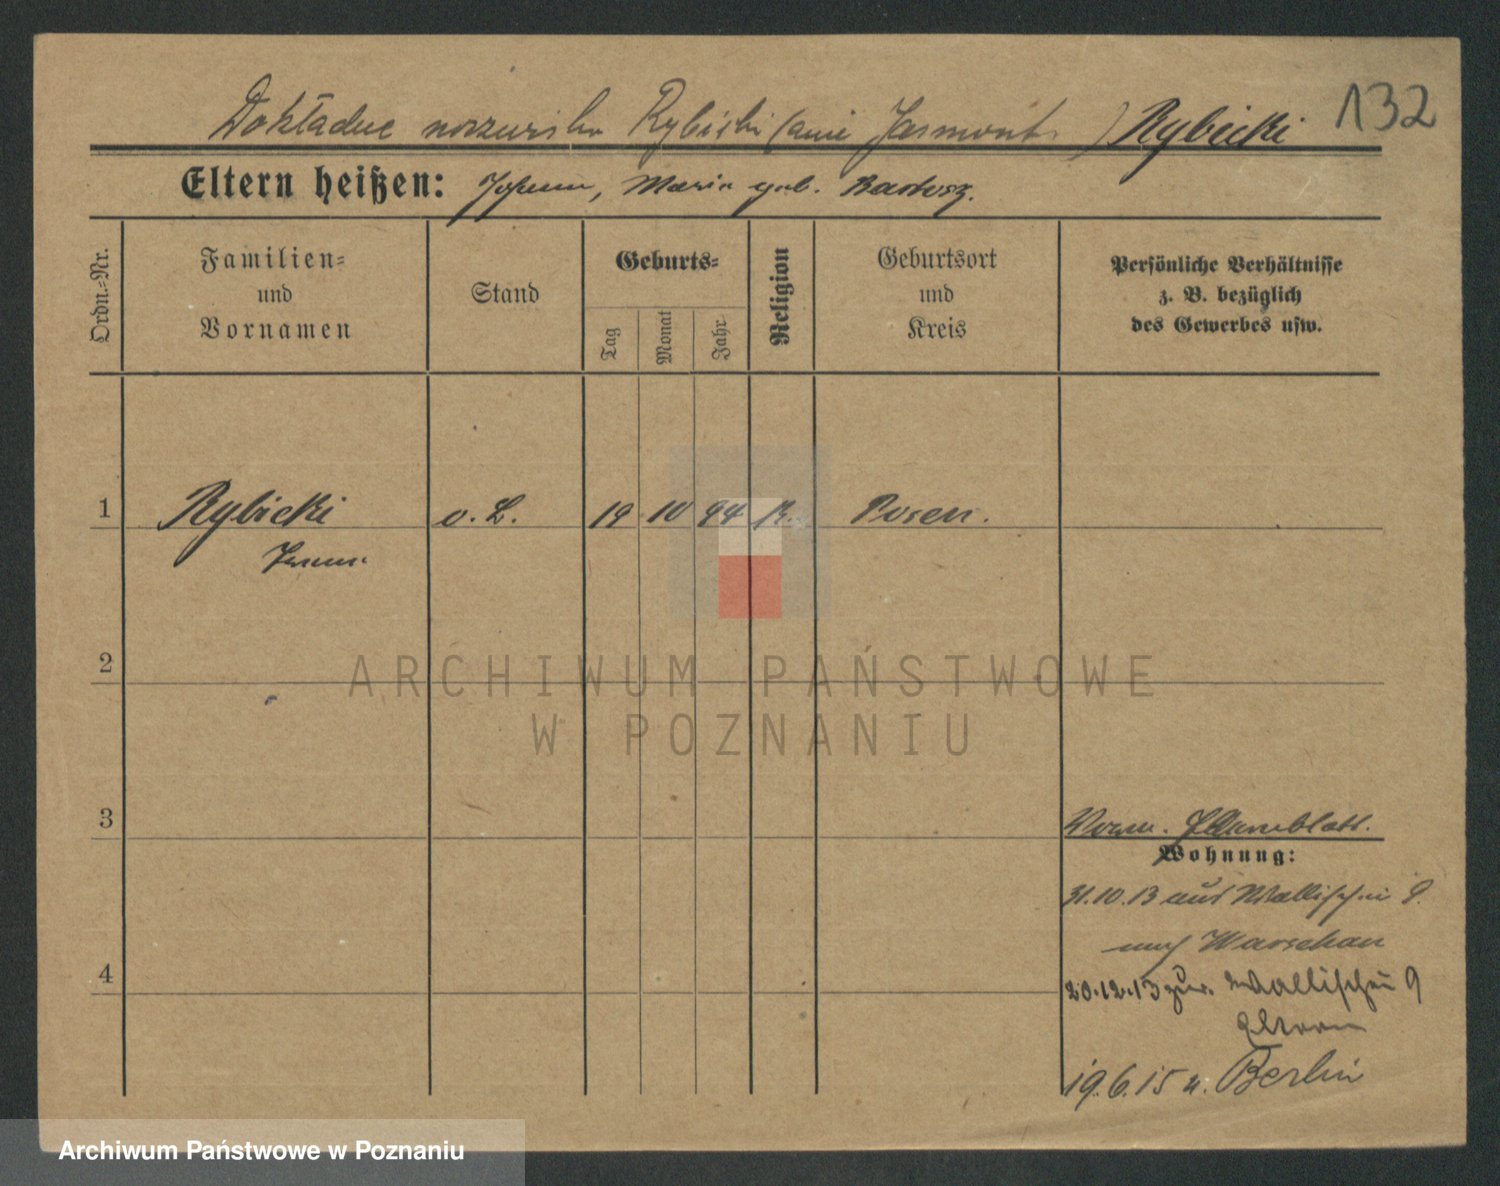 Dokładne nazwisko Rybicki (a nie Jasmont) Rybicki 132
Eltern heißen: Johann, Maria geb. Bartosz.
Ordn.-Nr.
Familien-
und
Vornamen
Stand
Geburts-
Tag
Monat
Jahr
Religion
Geburtsort
und
Kreis
Persönliche Verhältnisse
z. B. bezüglich
des Gewerbes usw.
1 Rybicki o. L. 19 10 94 K. Posen.
2
ARCHIWUM PAŃSTWOWE
W POZNANIU
3
Wohnung:
31.10.13 aus Wallischei 9.
nach Warschau
4
20.12.13 zur. Wallischei 9
Eltern
19.6.15 n. Berlin
Archiwum Państwowe w Poznaniu